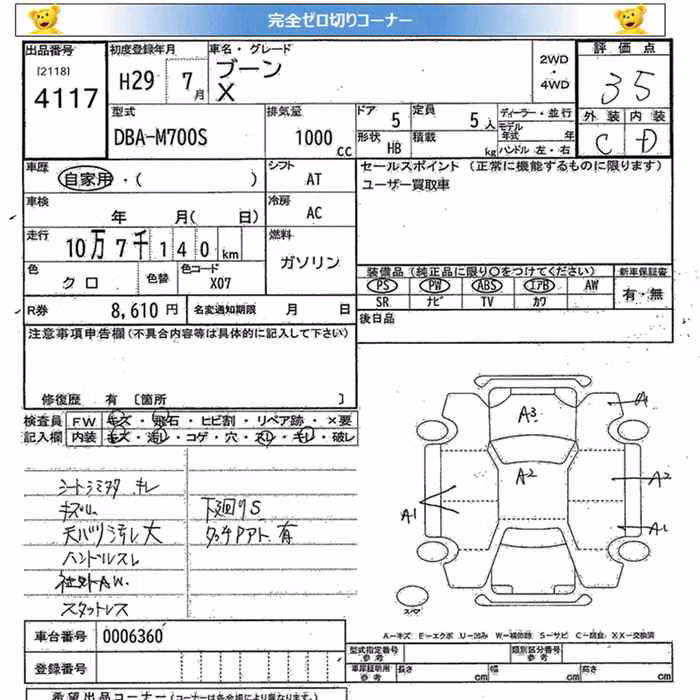 完全ゼロ切りコーナー
出品番号 [2118] 4117
初度登録年月 H29 7月
車名・グレード ブーン X
2WD ・ 4WD
評価点 35
外装 内装
C D
型式 DBA-M700S
排気量 1000 cc
ドア 5
定員 5人
形状 HB
積載 kg
ディーラー・並行
モデル年式 年
ハンドル 左・右
車歴 自家用・( )
シフト AT
車検 年 月( 日)
冷房 AC
走行 10万7千140km
燃料 ガソリン
色 クロ
色替
色コード X07
R券 8,610円
名変通知期限 月 日
セールスポイント (正常に機能するものに限ります)
ユーザー買取車
装備品(純正品に限り○をつけてください)
新車保証書
PS PW ABS エアB AW
有・無
SR ナビ TV カワ
後日品
注意事項申告欄(不具合内容等は具体的に記入して下さい)
修復歴 有 〔箇所 〕
検査員記入欄
FW キズ・飛石・ヒビ割・リペア跡・×要
内装 キズ・汚レ・コゲ・穴・スレ・キレ・破レ
キレ
天バリ汚レ大
ハンドルスレ
社外A.W.
スタットレス
下廻りS
タッチPアト有
A
A3
A2
A2
A1
A1
スペア
A-キズ E-エクボ U-凹み W-補修跡 S-サビ C-腐食 XX-交換済
車台番号 0006360
登録番号
型式指定番号 参考
類別区分番号 参考
車庫証明用 参考 長さ cm 幅 cm 高さ cm
希望出品コーナー(コーナーは各会場により異なります。)